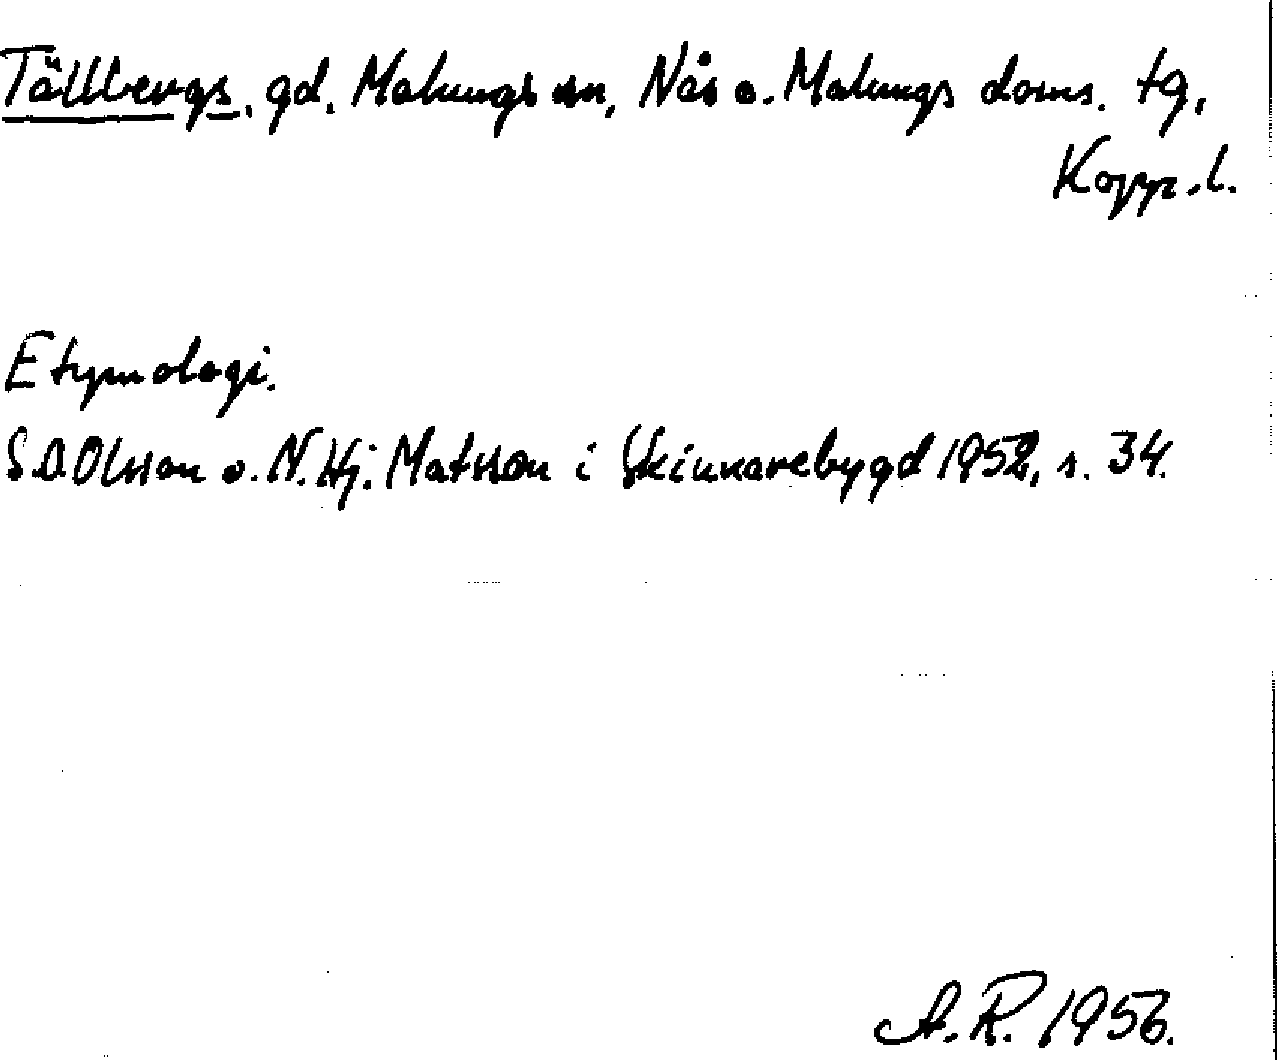 Tällbergs, gd. Malungs sn, Nås o. Malungs doms. tg,
Kopp. l.
Etymologi.
S.D. Olsson o. N. Hj. Matsson i Skinnarebygd 1952, s. 34.
A. R. 1956.